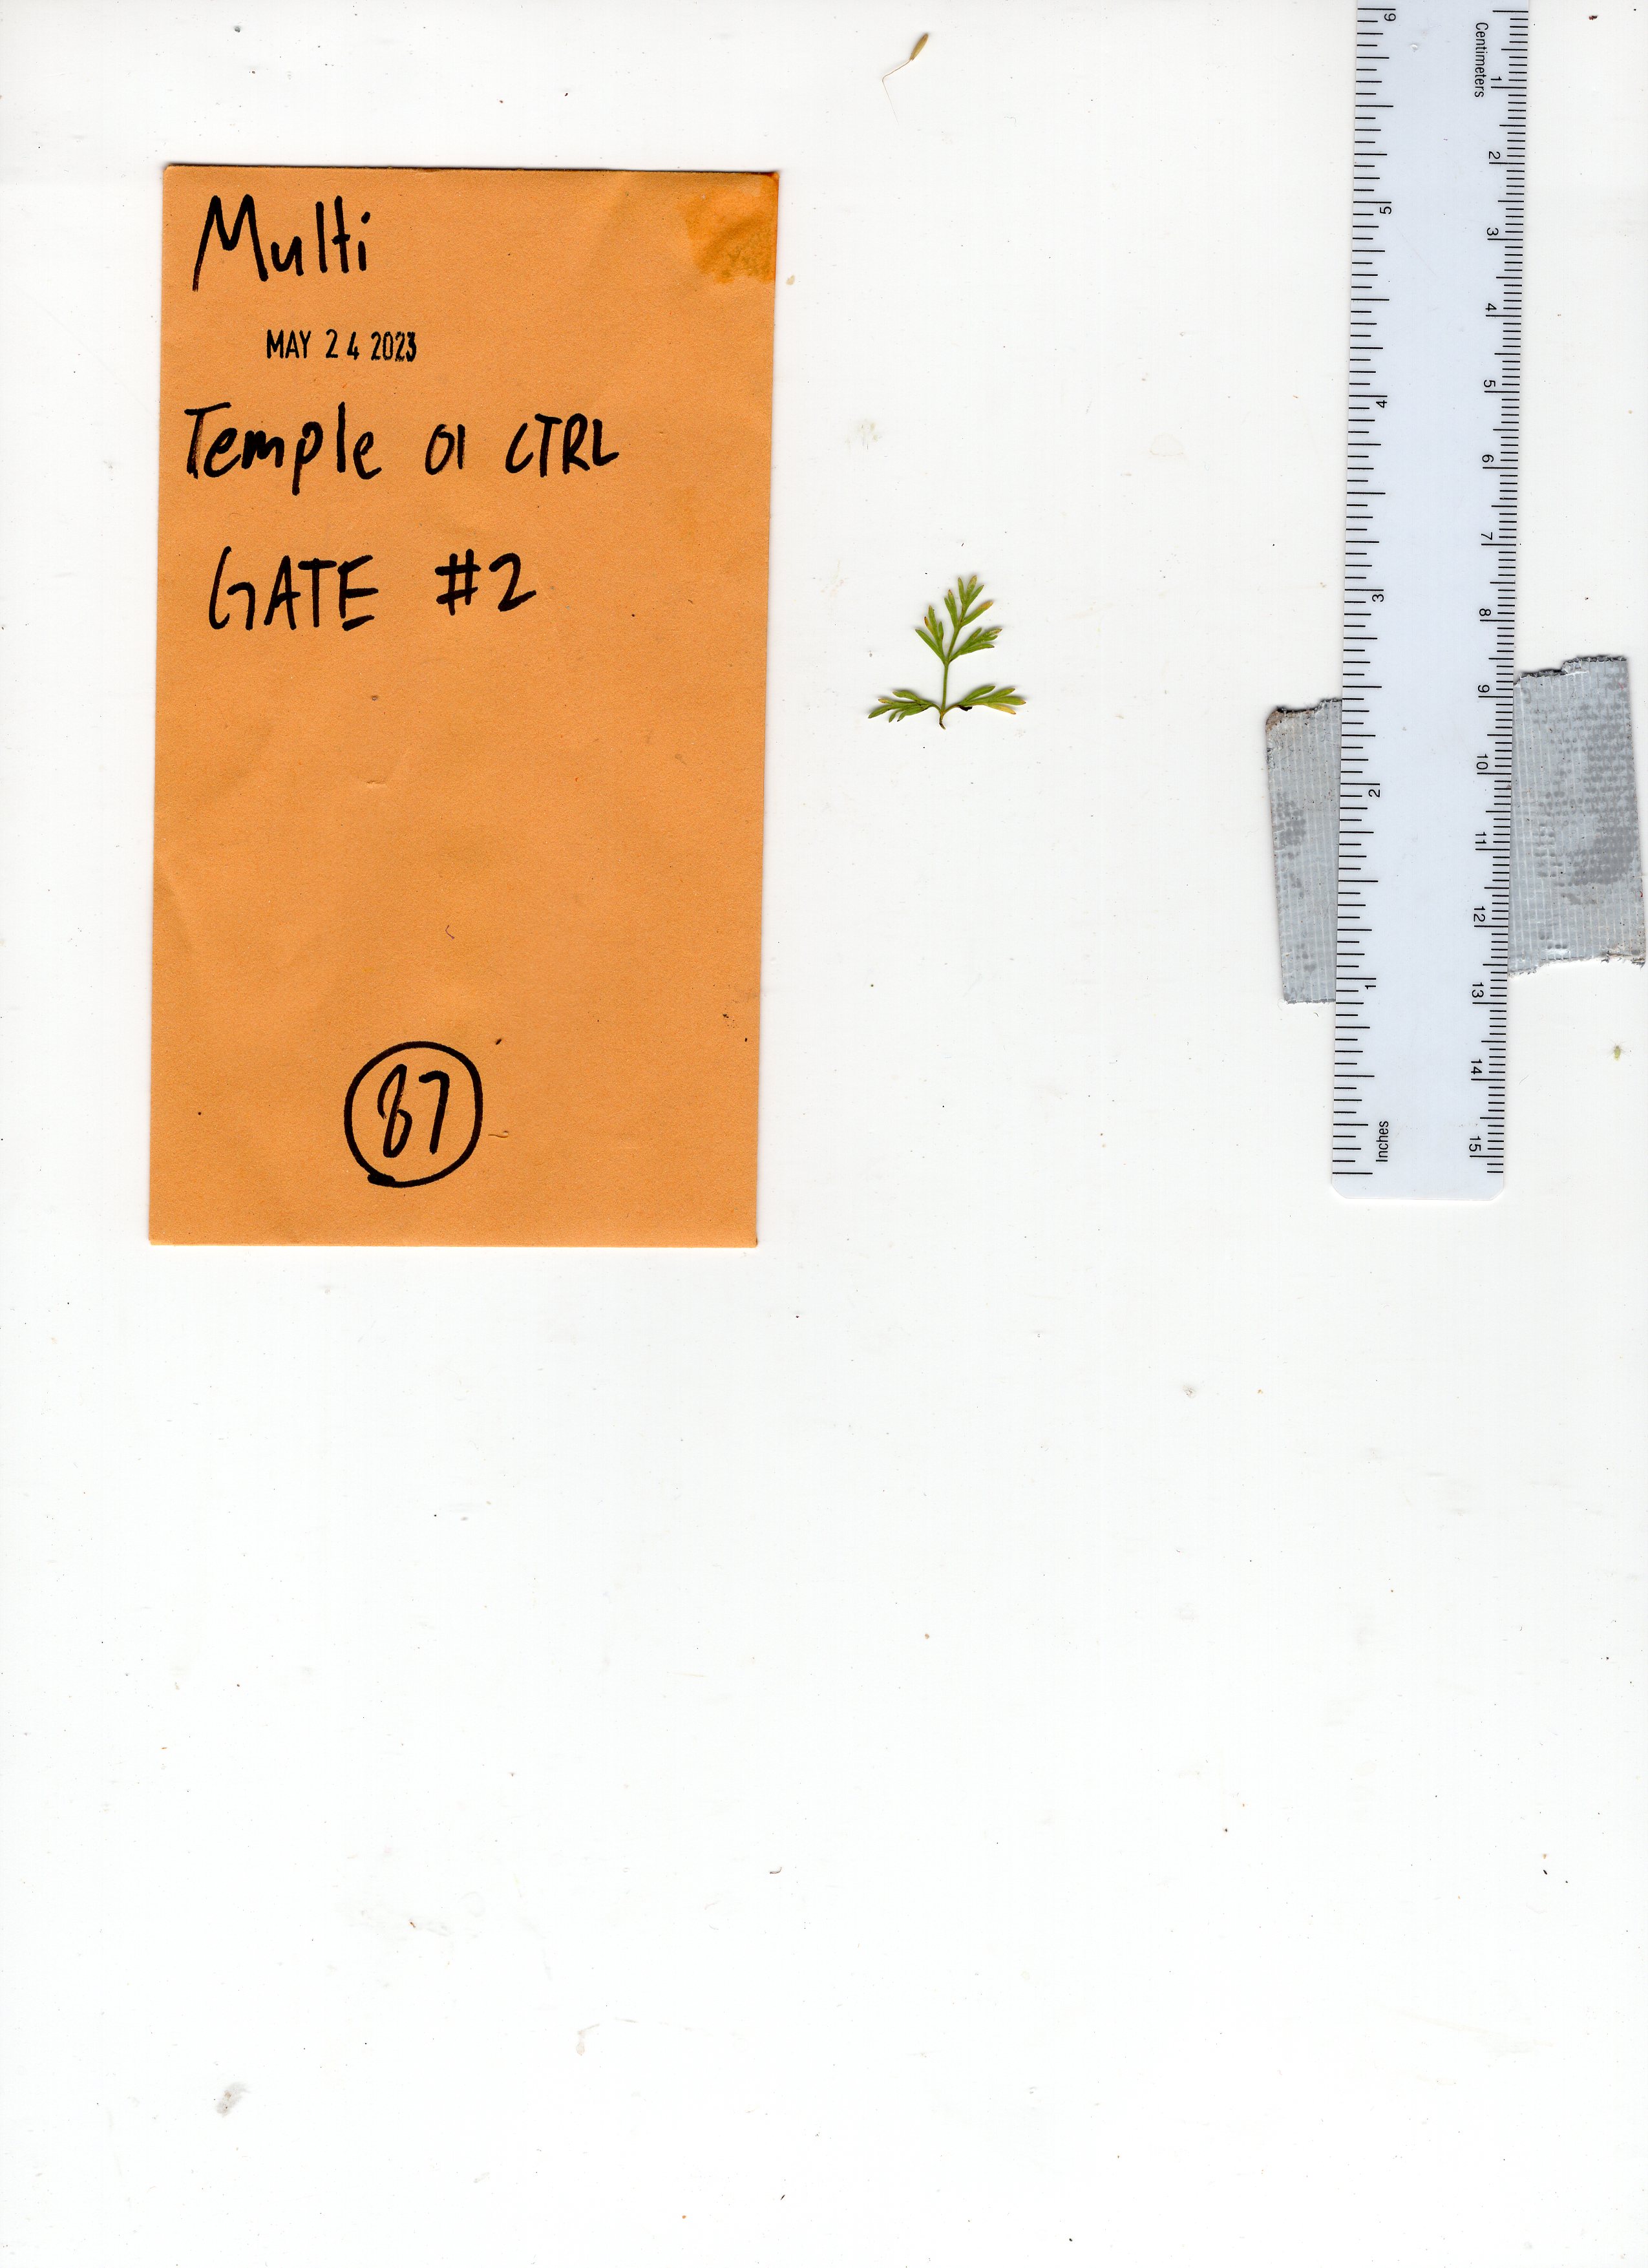 Multi
MAY 24 2023
Temple 01 CTRL
GATE #2
87
Centimeters
1
2
3
4
5
6
7
8
9
10
11
12
13
14
15
6
5
4
3
2
1
Inches